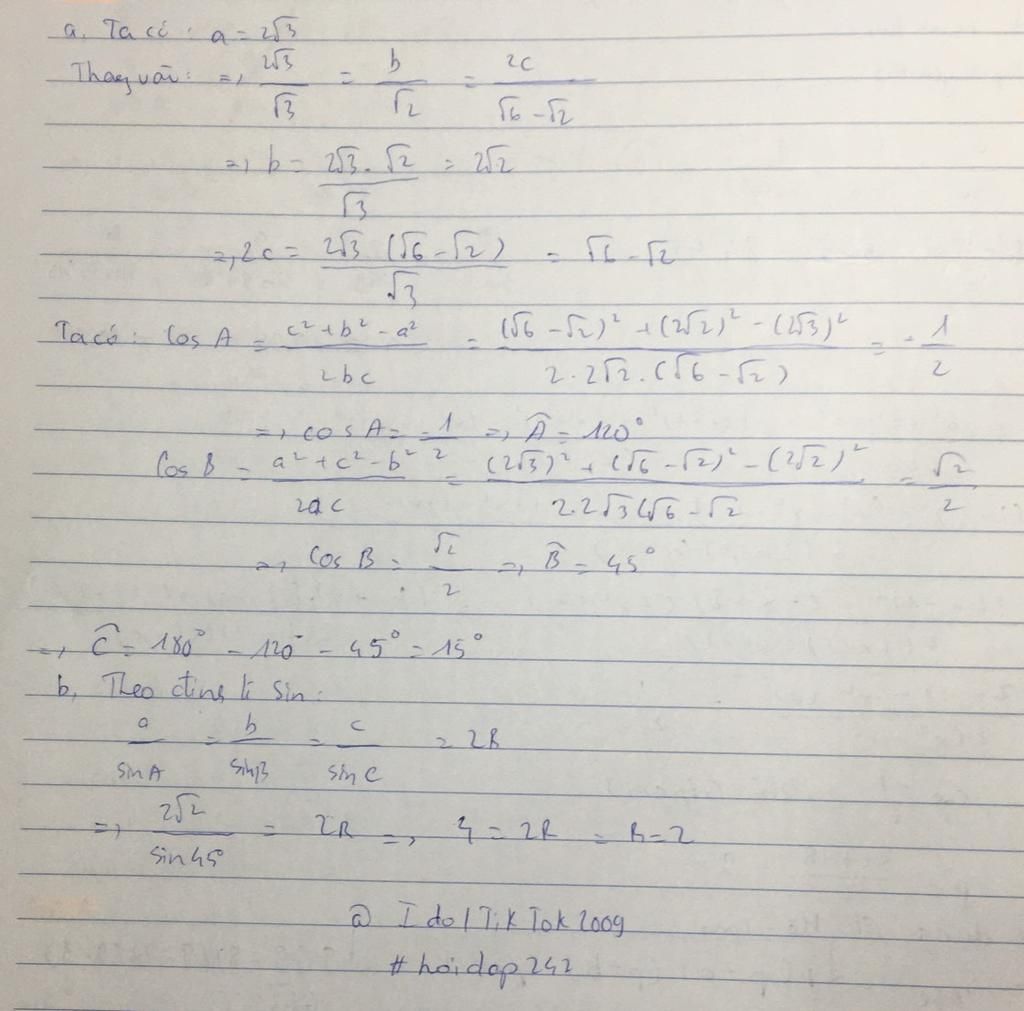 a. Ta có: a = 2√3
Thay vào: => 2√3/√3 = b/√2 = 2c/(√6 - √2)
=> b = (2√3 . √2)/√3 = 2√2
=> 2c = (2√3 (√6 - √2))/√3 = √6 - √2
Ta có: Cos A = (c² + b² - a²)/(2bc) = ((√6 - √2)² + (2√2)² - (2√3)²)/(2.2√2.(√6 - √2)) = -1/2
=> cos A = -1/2 => Â = 120°
Cos B = (a² + c² - b²)/(2ac) = ((2√3)² + (√6 - √2)² - (2√2)²)/(2.2√3(√6 - √2) = √2/2
=> Cos B = √2/2 => B̂ = 45°
=> Ĉ = 180° - 120° - 45° = 15°
b, Theo định lí Sin:
a/sin A = b/sin B = c/sin C = 2R
=> 2√2/sin 45° = 2R => 4 = 2R = R = 2
@ IdolTikTok2009
#hoidap242